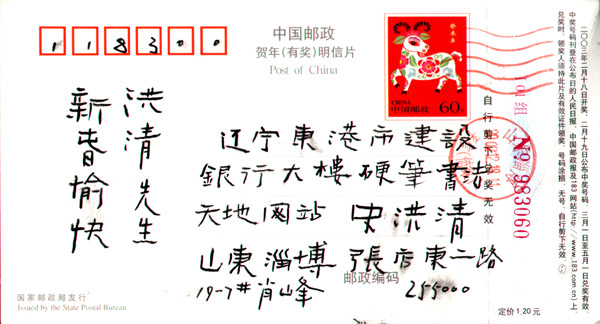 118300
中国邮政
贺年(有奖)明信片
Post of China
癸未年
CHINA
中国邮政
60分
洪清先生
新春愉快
辽宁東港市建設
銀行大樓硬筆書法
天地网站 宋洪清
山東淄博張店東二路
19-7# 肖山峰 255000
邮政编码
国家邮政局发行
Issued by the State Postal Bureau
定价1.20元
自行剪下兑奖无效
101组 No 983060
二〇〇三年二月十八日开奖,二月十九日公布中奖号码,三月一日至五月一日兑奖有效。
中奖号码刊登在公布日的人民日报、中国邮政报及183网站(http://www.183.com.cn)上。
兑奖时,领奖人须持此片及有效证件领奖,号码涂损、无号、自行剪下无效。